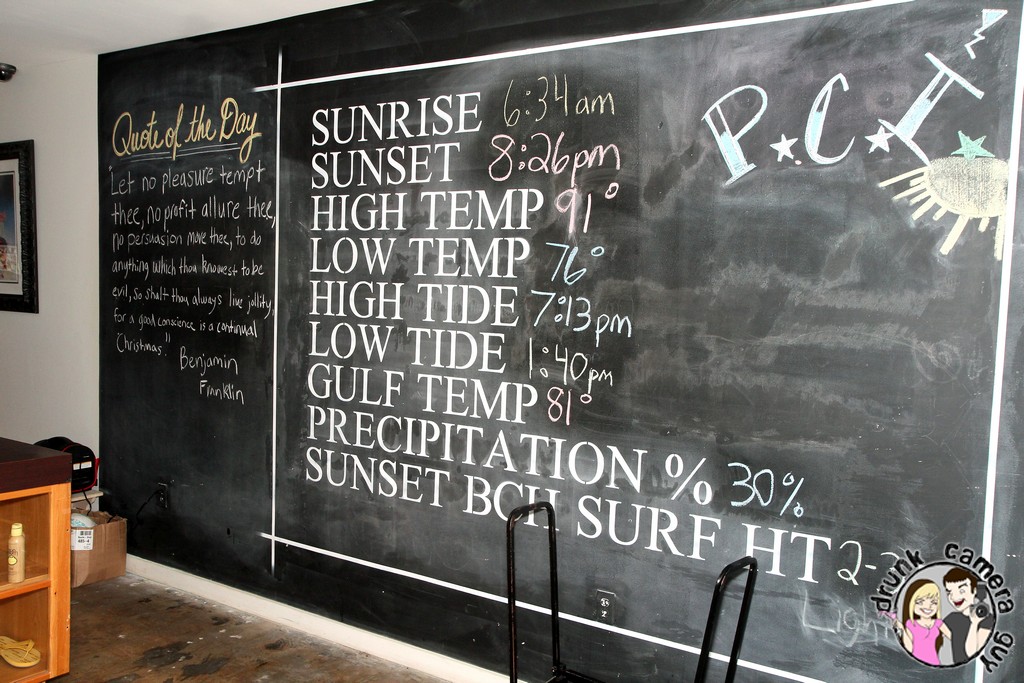 Quote of the Day
"Let no pleasure tempt
thee, no profit allure thee,
no persuasion move thee, to do
anything which thou knowest to be
evil, so shalt thou always live jollity,
for a good conscience is a continual
Christmas."
Benjamin
Franklin
SUNRISE 6:34am
SUNSET 8:26pm
HIGH TEMP 91°
LOW TEMP 76°
HIGH TIDE 7:13pm
LOW TIDE 1:40pm
GULF TEMP 81°
PRECIPITATION % 30%
SUNSET BCH SURF HT 2-
P.C.I
drunk camera guy